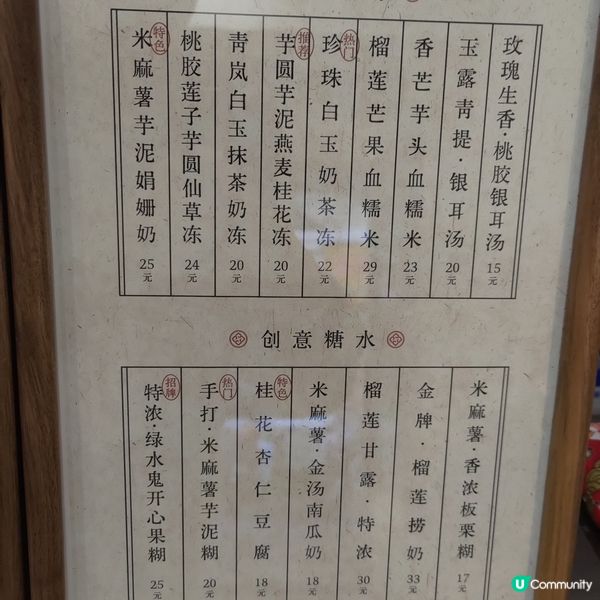 玫瑰生香·桃胶银耳汤 15元
玉露青提·银耳汤 20元
香芒芋头血糯米 23元
榴莲芒果血糯米 29元
热门 珍珠白玉奶茶冻 22元
推荐 芋圆芋泥燕麦桂花冻 20元
青岚白玉抹茶奶冻 20元
桃胶莲子芋圆仙草冻 24元
特色 米麻薯芋泥娟姗奶 25元
创意糖水
米麻薯·香浓板栗糊 17元
金牌·榴莲捞奶 33元
榴莲甘露·特浓 30元
米麻薯·金汤南瓜奶 18元
特色 桂花杏仁豆腐 18元
热门 手打·米麻薯芋泥糊 20元
招牌 特浓·绿水鬼开心果糊 25元
U Community